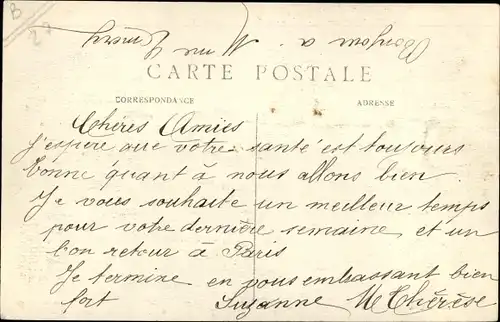 B
27
Bonjour a
Mme
CARTE POSTALE
CORRESPONDANCE
ADRESSE
Chéres Amies
J'espere que votre santé est toujours
bonne quant à nous allons bien.
Je vous souhaite un meilleur temps
pour votre dernière semaine et un
bon retour à Paris
Je termine en vous embassant bien
fort Suzanne M Thérèse